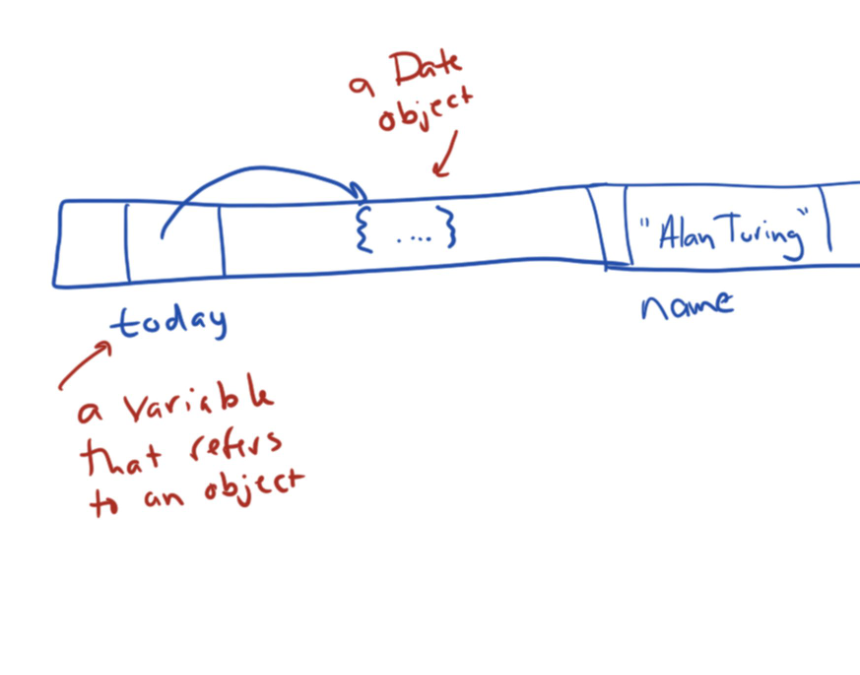 a Date
object
{ .... }
"Alan Turing"
today
name
a variable
that refers
to an object